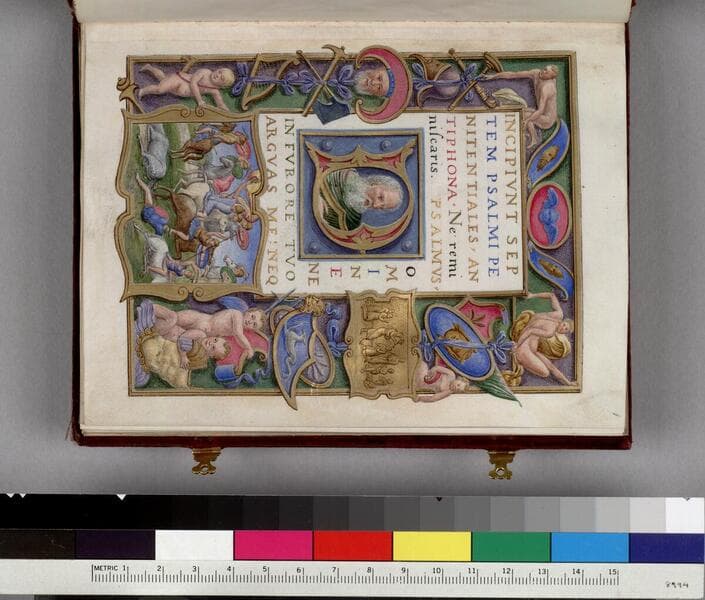 INCIPIVNT SEP
TEM PSALMI PE
NITENTIALES, AN
TIPHONA. Ne remi
niscaris. PSALMVS,
D O
M
I
N
E
NE
IN FVRORE TVO
ARGVAS ME: NEQ
METRIC 1 2 3 4 5 6 7 8 9 10 11 12 13 14 15